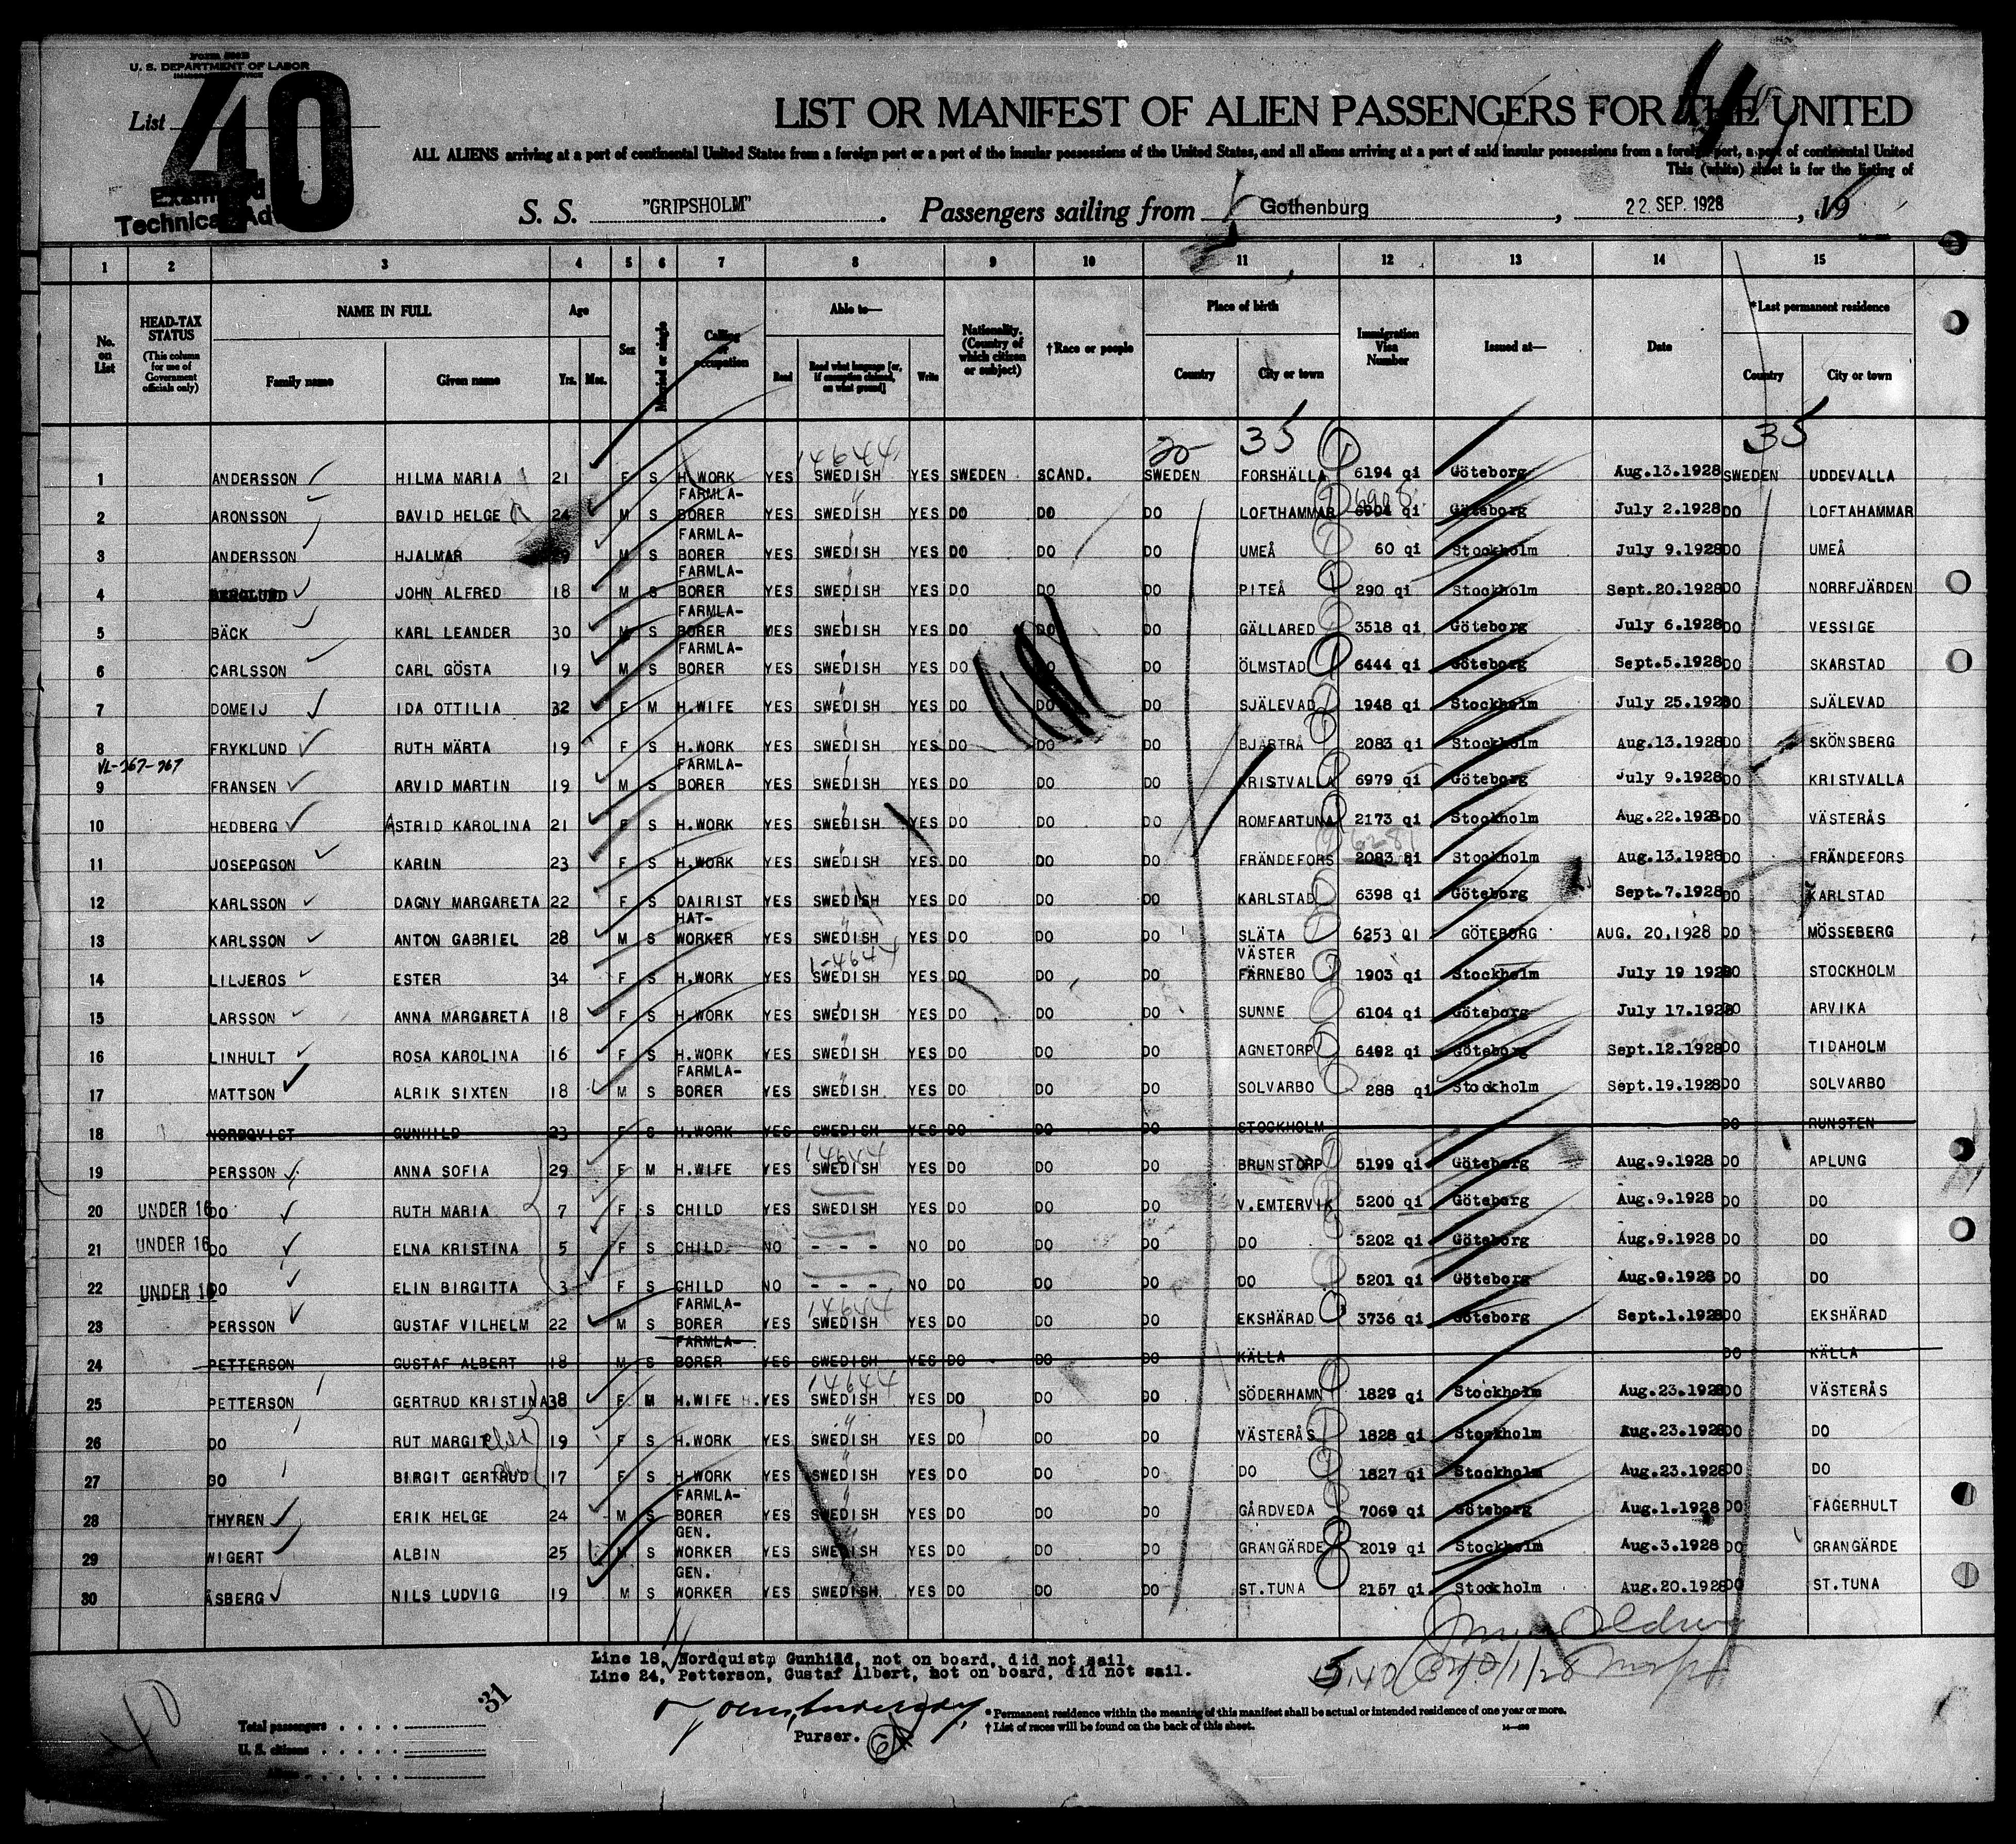 Form 500 B
U. S. DEPARTMENT OF LABOR
IMMIGRATION SERVICE
List 40
Examined
Technical Ad
LIST OR MANIFEST OF ALIEN PASSENGERS FOR THE UNITED
ALL ALIENS arriving at a port of continental United States from a foreign port or a port of the insular possessions of the United States, and all aliens arriving at a port of said insular possessions from a foreign port, a port of continental United
This (white) sheet is for the listing of
S. S. "GRIPSHOLM" . Passengers sailing from Gothenburg , 22. SEP. 1928 , 19
1 2 3 4 5 6 7 8 9 10 11 12 13 14 15
No. on List
HEAD-TAX STATUS (This column for use of Government officials only)
NAME IN FULL Family name Given name
Age Yrs. Mos.
Sex
Married or single
Calling or occupation
Able to— Read Read what language [or, if exemption claimed, on what ground] Write
Nationality. (Country of which citizen or subject)
†Race or people
Place of birth Country City or town
Immigration Visa Number
Issued at—
Date
*Last permanent residence Country City or town
14644 20 35 35
1 ANDERSSON HILMA MARIA 21 F S H.WORK YES SWEDISH YES SWEDEN SCAND. SWEDEN FORSHÄLLA 6194 qi Göteborg Aug.13.1928 SWEDEN UDDEVALLA
2 ARONSSON DAVID HELGE 24 M S FARMLA-BORER YES SWEDISH YES DO DO DO LOFTHAMMAR 6904 qi Göteborg July 2.1928 DO LOFTAHAMMAR
3 ANDERSSON HJALMAR M S FARMLA-BORER YES SWEDISH YES DO DO DO UMEÅ 60 qi Stockholm July 9.1928 DO UMEÅ
4 BERGLUND JOHN ALFRED 18 M S FARMLA-BORER YES SWEDISH YES DO DO DO PITEÅ 290 qi Stockholm Sept.20.1928 DO NORRFJÄRDEN
5 BÄCK KARL LEANDER 30 M S FARMLA-BORER YES SWEDISH YES DO DO DO GÄLLARED 3518 qi Göteborg July 6.1928 DO VESSIGE
6 CARLSSON CARL GÖSTA 19 M S FARMLA-BORER YES SWEDISH YES DO DO DO ÖLMSTAD 6444 qi Göteborg Sept.5.1928 DO SKARSTAD
7 DOMEIJ IDA OTTILIA 32 F M H.WIFE YES SWEDISH YES DO DO DO SJÄLEVAD 1948 qi Stockholm July 25.1928 DO SJÄLEVAD
8 FRYKLUND RUTH MÄRTA 19 F S H.WORK YES SWEDISH YES DO DO DO BJÄRTRÅ 2083 qi Stockholm Aug.13.1928 DO SKÖNSBERG
VL-267-267
9 FRANSEN ARVID MARTIN 19 M S FARMLA-BORER YES SWEDISH YES DO DO DO KRISTVALLA 6979 qi Göteborg July 9.1928 DO KRISTVALLA
10 HEDBERG ASTRID KAROLINA 21 F S H.WORK YES SWEDISH YES DO DO DO ROMFARTUNA 2173 qi Stockholm Aug.22.1928 DO VÄSTERÅS
11 JOSEPGSON KARIN 23 F S H.WORK YES SWEDISH YES DO DO DO FRÄNDEFORS 2083 8i Stockholm Aug.13.1928 DO FRÄNDEFORS
12 KARLSSON DAGNY MARGARETA 22 F S DAIRIST YES SWEDISH YES DO DO DO KARLSTAD 6398 qi Göteborg Sept.7.1928 DO KARLSTAD
13 KARLSSON ANTON GABRIEL 28 M S HAT-WORKER YES SWEDISH YES DO DO DO SLÄTA 6253 QI GÖTEBORG AUG. 20,1928 DO MÖSSEBERG
14 LILJEROS ESTER 34 F S H.WORK YES SWEDISH YES DO DO DO VÄSTER FÄRNEBO 1903 qi Stockholm July 19 1928 DO STOCKHOLM
15 LARSSON ANNA MARGARETA 18 F S H.WORK YES SWEDISH YES DO DO DO SUNNE 6104 qi Göteborg July 17.1928 DO ARVIKA
16 LINHULT ROSA KAROLINA 16 F S H.WORK YES SWEDISH YES DO DO DO AGNETORP 6492 qi Göteborg Sept.12.1928 DO TIDAHOLM
17 MATTSON ALRIK SIXTEN 18 M S FARMLA-BORER YES SWEDISH YES DO DO DO SOLVARBO 288 qi Stockholm Sept.19.1928 DO SOLVARBO
18 NORDQVIST GUNHILD 23 F S H.WORK YES SWEDISH YES DO DO DO STOCKHOLM DO RUNSTEN
19 PERSSON ANNA SOFIA 29 F M H.WIFE YES 14644 SWEDISH YES DO DO DO BRUNSTORP 5199 qi Göteborg Aug.9.1928 DO APLUNG
20 UNDER 16 DO RUTH MARIA 7 F S CHILD YES SWEDISH YES DO DO DO V.EMTERVIK 5200 qi Göteborg Aug.9.1928 DO DO
21 UNDER 16 DO ELNA KRISTINA 5 F S CHILD NO - - - NO DO DO DO DO 5202 qi Göteborg Aug.9.1928 DO DO
22 UNDER 16 DO ELIN BIRGITTA 3 F S CHILD NO - - - NO DO DO DO DO 5201 qi Göteborg Aug.9.1928 DO DO
23 PERSSON GUSTAF VILHELM 22 M S FARMLA-BORER YES 14644 SWEDISH YES DO DO DO EKSHÄRAD 3736 qi Göteborg Sept.1.1928 DO EKSHÄRAD
24 PETTERSON GUSTAF ALBERT 18 M S FARMLA-BORER YES SWEDISH YES DO DO DO KÄLLA DO KÄLLA
25 PETTERSON GERTRUD KRISTINA 38 F M H.WIFE YES 14644 SWEDISH YES DO DO DO SÖDERHAMN 1829 qi Stockholm Aug.23.1928 DO VÄSTERÅS
26 DO RUT MARGIT 19 F S H.WORK YES SWEDISH YES DO DO DO VÄSTERÅS 1828 qi Stockholm Aug.23.1928 DO DO
27 DO BIRGIT GERTRUD 17 F S H.WORK YES SWEDISH YES DO DO DO DO 1827 qi Stockholm Aug.23.1928 DO DO
28 THYREN ERIK HELGE 24 M S FARMLA-BORER YES SWEDISH YES DO DO DO GÅRDVEDA 7069 qi Göteborg Aug.1.1928 DO FAGERHULT
29 WIGERT ALBIN 25 M S GEN. WORKER YES SWEDISH YES DO DO DO GRANGÄRDE 2019 qi Stockholm Aug.3.1928 DO GRANGÄRDE
30 ÅSBERG NILS LUDVIG 19 M S GEN. WORKER YES SWEDISH YES DO DO DO ST.TUNA 2157 qi Stockholm Aug.20.1928 DO ST.TUNA
Line 18, Nordquist, Gunhild, not on board, did not sail
Line 24, Petterson, Gustaf Albert, not on board, did not sail.
40
31
Total passengers
U. S. citizens
Aliens
Purser.
* Permanent residence within the meaning of this manifest shall be actual or intended residence of one year or more.
† List of races will be found on the back of this sheet.